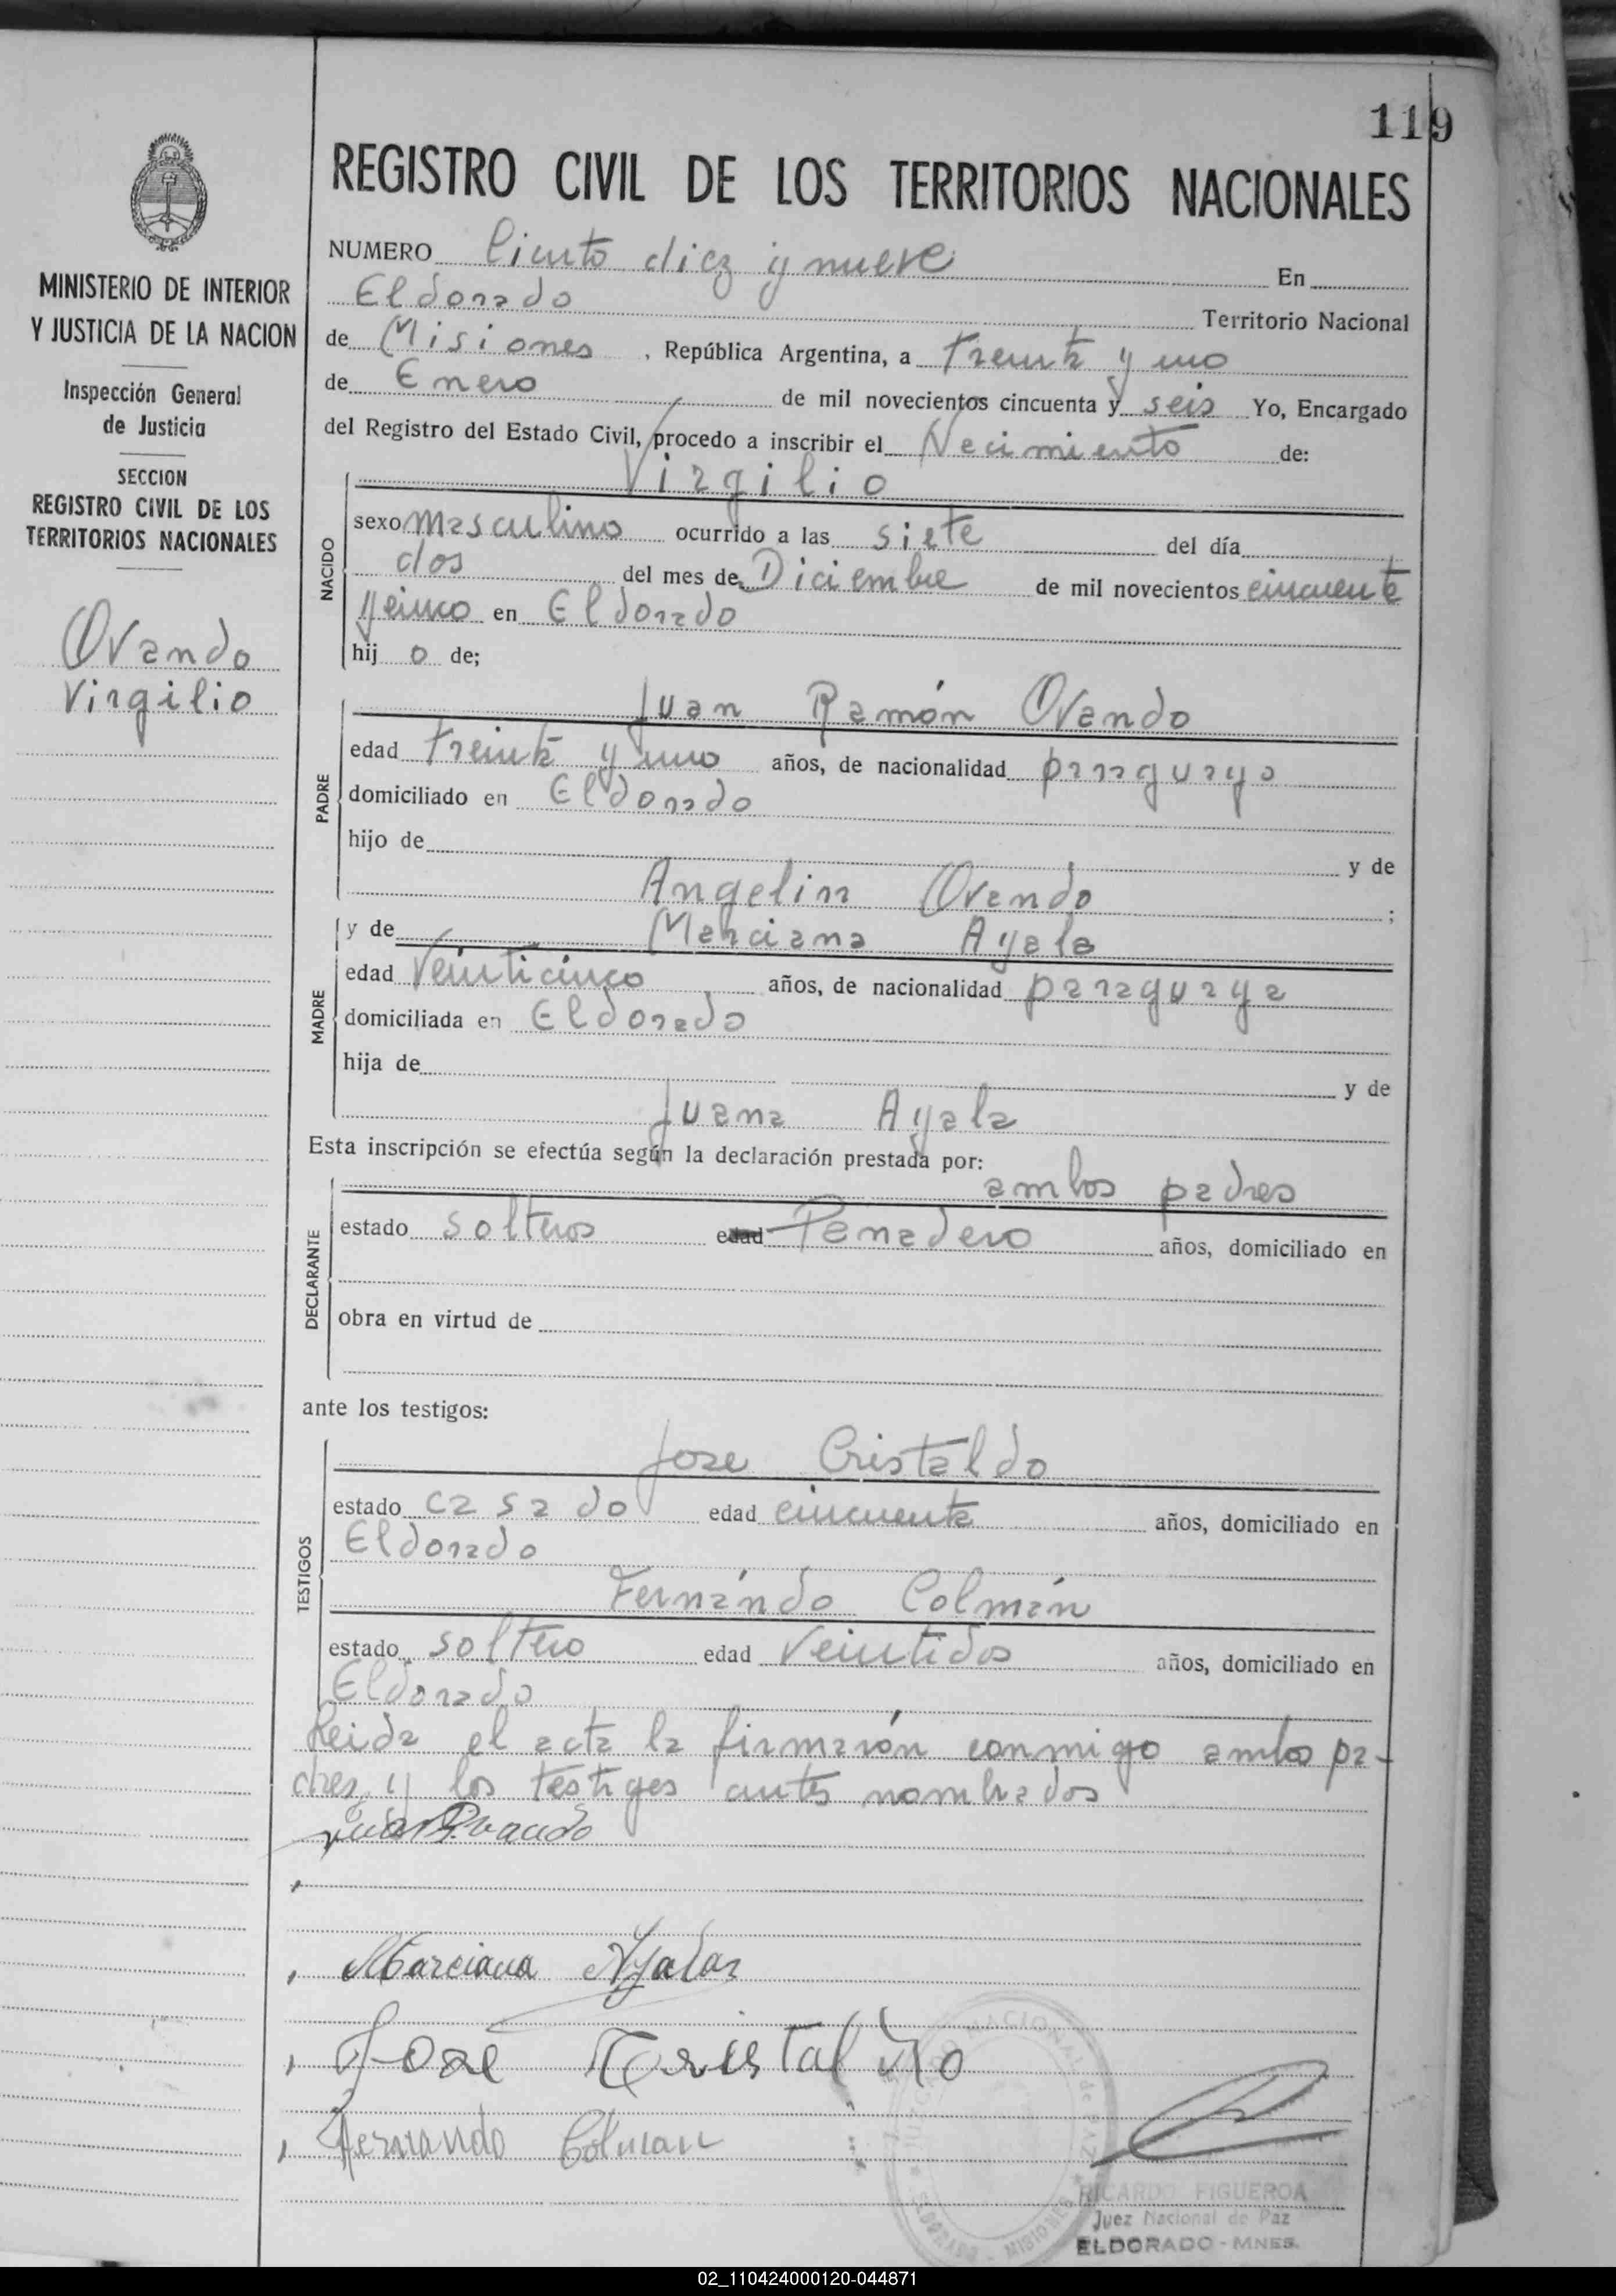 119
REGISTRO CIVIL DE LOS TERRITORIOS NACIONALES
MINISTERIO DE INTERIOR
Y JUSTICIA DE LA NACION
Inspección General
de Justicia
SECCION
REGISTRO CIVIL DE LOS
TERRITORIOS NACIONALES
Ovando
Virgilio
NUMERO Ciento diez y nueve En
Eldorado Territorio Nacional
de Misiones, República Argentina, a treinta y uno
de Enero de mil novecientos cincuenta y seis Yo, Encargado
del Registro del Estado Civil, procedo a inscribir el Nacimiento de:
Virgilio
NACIDO
sexo masculino ocurrido a las siete del día
dos del mes de Diciembre de mil novecientos cincuenta
y cinco en Eldorado
hij o de;
Juan Ramón Ovando
PADRE
edad treinta y uno años, de nacionalidad paraguayo
domiciliado en Eldorado
hijo de y de
Angelina Ovando ;
y de Marciana Ayala
MADRE
edad Veinticinco años, de nacionalidad paraguaya
domiciliada en Eldorado
hija de y de
Juana Ayala
Esta inscripción se efectúa según la declaración prestada por:
ambos padres
DECLARANTE
estado solteros edad Panadero años, domiciliado en
obra en virtud de
ante los testigos:
Jose Cristaldo
TESTIGOS
estado casado edad cincuenta años, domiciliado en
Eldorado
Fernándo Colmán
estado soltero edad Veintidos años, domiciliado en
Eldorado
Leida el acta la firmarón conmigo ambos pa-
dres y los testigos antes nombrados
Juan R Ovando
Marciana Ayala
Jose Cristaldo
Fernando Colman
RICARDO FIGUEROA
Juez Nacional de Paz
ELDORADO - MNES.
02_110424000120-044871